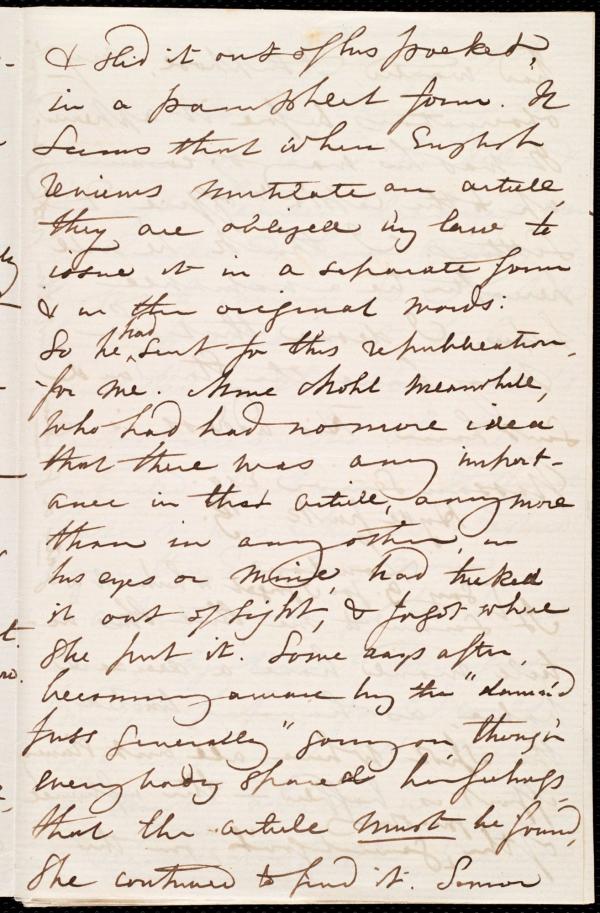 & slid it out of his pocket,
in a pamphlet form. It
seems that when English
reviews mutilate an article,
they are obliged by law to
issue it in a separate form
& in the original words:
So he had sent for this republication,
for me. Mme Mohl meanwhile,
who had had no more idea
that there was any import-
ance in that article, any more
than in any other, in
his eyes or mine, had tucked
it out of sight, & forgot where
she put it. Some days after,
becoming aware by the "damn'd
fuss generally" going on though
everybody shared his feelings,
that the article must be found,
she contrived to find it. Senior